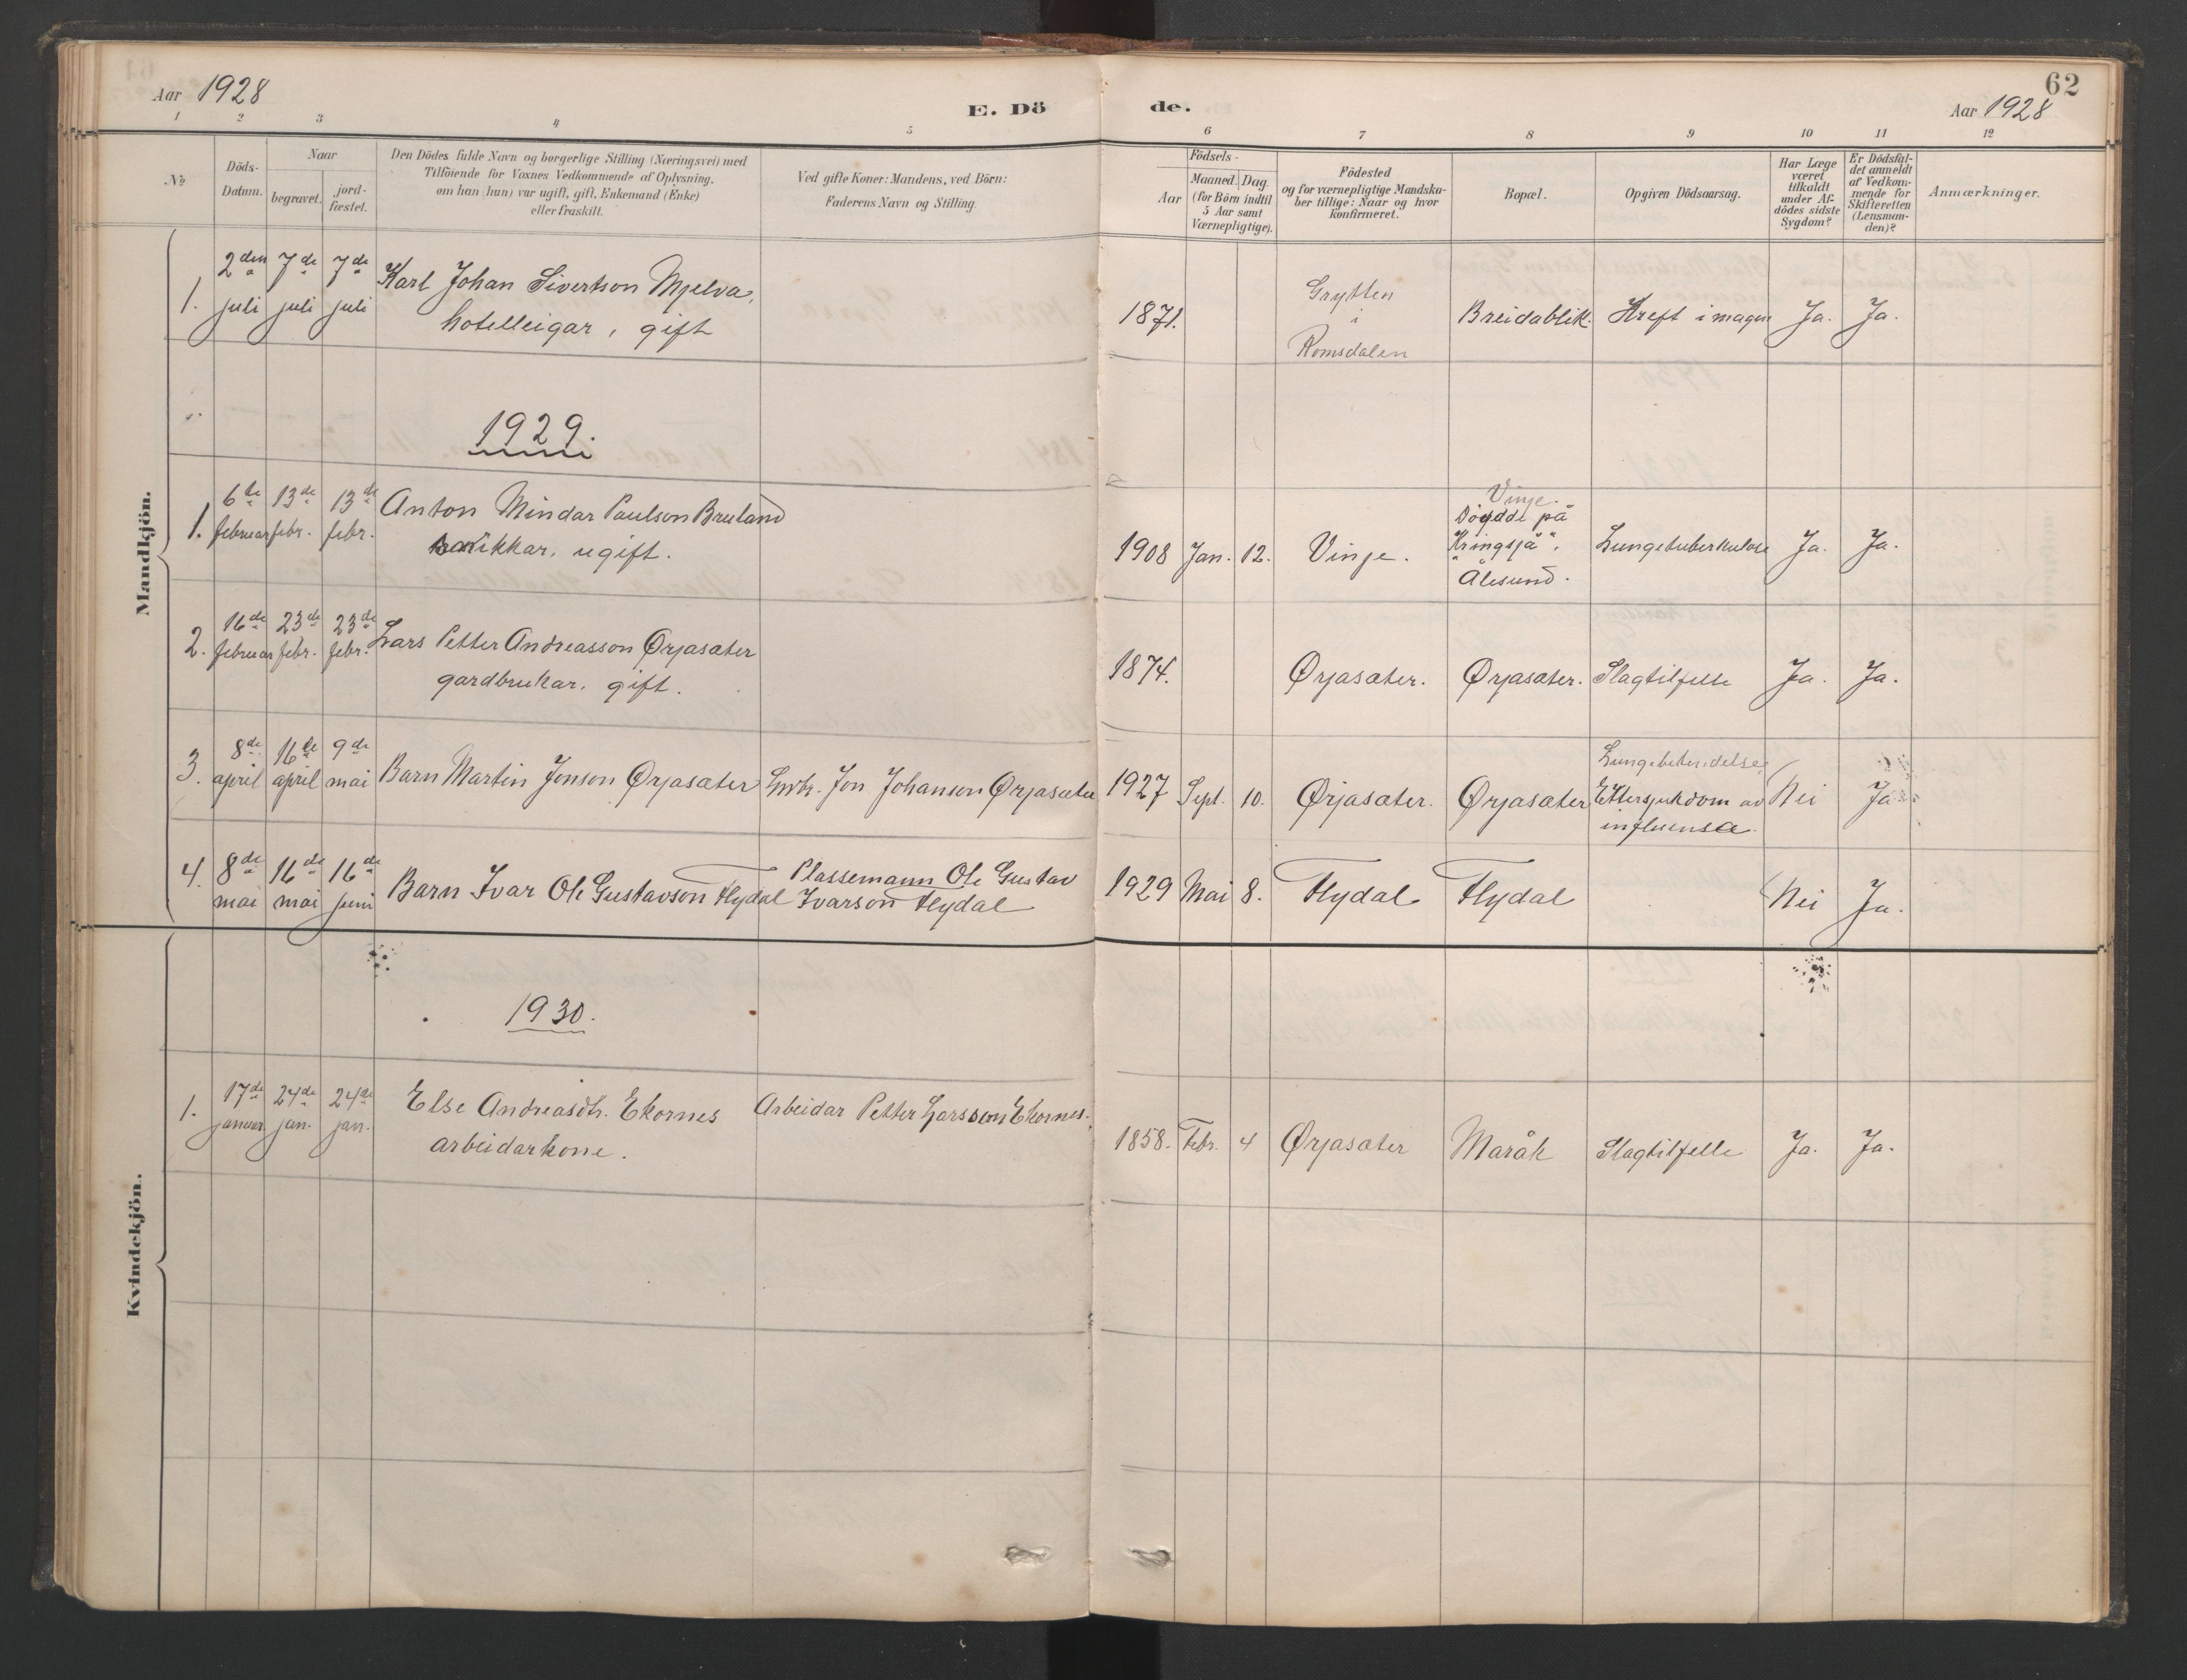 62
Aar 1928
E. Dö de.
Aar 1928
1 2 3 4 5 6 7 8 9 10 11 12
№
Döds-
Datum.
Naar
begravet.
jord-
fæstet.
Den Dödes fulde Navn og borgerlige Stilling (Næringsvei) med
Tilföiende for Voxnes Vedkommende af Oplysning,
om han (hun) var ugift, gift, Enkemand (Enke)
eller fraskilt.
Ved gifte Koner: Mandens, ved Börn:
Faderens Navn og Stilling.
Födsels-
Aar
Maaned. Dag.
(for Börn indtil
5 Aar samt
Værnepligtige).
Födested
og for værnepligtige Mandska-
ber tillige: Naar og hvor
konfirmeret.
Bopæl.
Opgiven Dödsaarsag.
Har Læge
været
tilkaldt
under Af-
dödes sidste
Sygdom?
Er Dödsfal-
det anmeldt
af Vedkom-
mende for
Skifteretten
(Lensman-
den)?
Anmærkninger.
Mandkjön.
1.
2den juli
7de juli
7de juli
Karl Johan Sivertson Mjelva,
hotelleigar, gift
1871.
Grytten
i
Romsdalen
Breidablik.
Kreft i magen
Ja.
Ja.
1929.
1.
6te februar
13de febr.
13de febr.
Anton Mindar Paulson Bruland
snikkar, ugift.
1908 Jan. 12.
Vinje.
Vinje.
Döydde på
"Kringsjå",
Ålesund.
Lungetuberkulose
Ja.
Ja.
2.
16de februar
23de febr.
23de febr.
Lars Petter Andreasson Ørjasæter
gardbrukar, gift.
1874.
Ørjasæter.
Ørjasæter.
Slagtilfelle
Ja.
Ja.
3.
8de april
16de april
9de mai
Barn Martin Jonson Ørjasæter
Jon Johanson Ørjasæter
1927 Sept. 10.
Ørjasæter.
Ørjasæter
Lungebetendelse,
Ettersjukdom av
influensa.
Nei
Ja
4.
8de mai
16de mai
16de juni
Barn Ivar Ole Gustavson Flydal
Plassemann Ole Gustav
Ivarson Flydal
1929 Mai 8.
Flydal
Flydal
Nei
Ja.
Kvindekjön.
1930.
1.
17de januar
24de jan.
24de jan.
Else Andreasdtr. Ekornes
arbeidarkone.
Arbeidar Petter Larsson Ekornes.
1858. Febr. 4
Ørjasæter
Maråk
Slagtilfelle
Ja.
Ja.